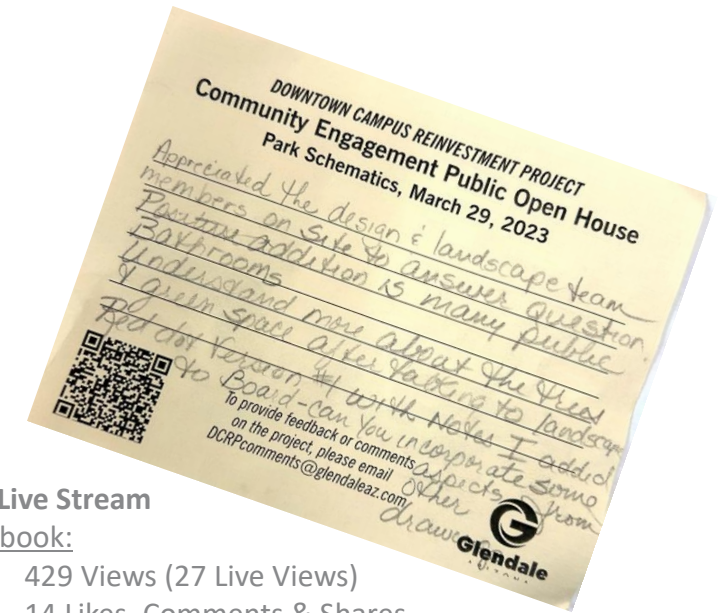 DOWNTOWN CAMPUS REINVESTMENT PROJECT
Community Engagement Public Open House
Park Schematics, March 29, 2023
Appreciated the design & landscape team
members on site to answer question.
Positive addition is many public
Bathrooms
Understand more about the trees
& green space after talking to landscape
Red dot Version #1 with Notes I added
to Board - can you incorporate some
aspects from
other
To provide feedback or comments
on the project, please email
DCRPcomments@glendaleaz.com
Glendale
Live Stream
book:
429 Views (27 Live Views)
14 Likes, Comments & Shares